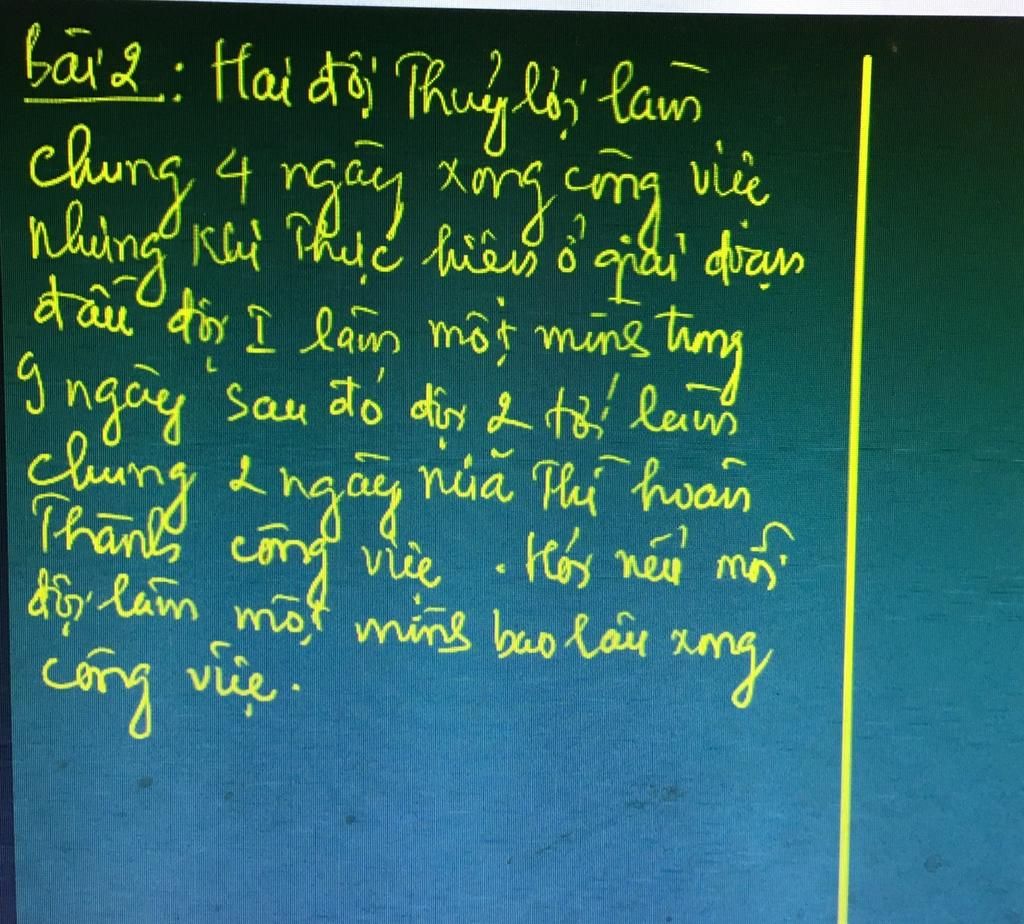 Bài 2: Hai đội Thuỷ lợi làm
chung 4 ngày xong công việc
Nhưng khi Thực hiện ở giai đoạn
đầu đội I làm một mình trong
9 ngày sau đó đội 2 tới làm
chung 2 ngày nữa Thì hoàn
Thành công việc. Hỏi nếu mỗi
đội làm một mình bao lâu xong
công việc.